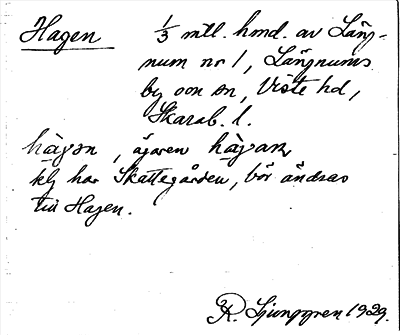 Hagen 1/3 mtl. hmd. av Läng-
num nr 1, Längnums
by o sn, Viste hd,
Skarab. l.
hàgən, ägaren
kbj har Skattegården, bör ändras
till Hagen.
R. Ljunggren 1929.